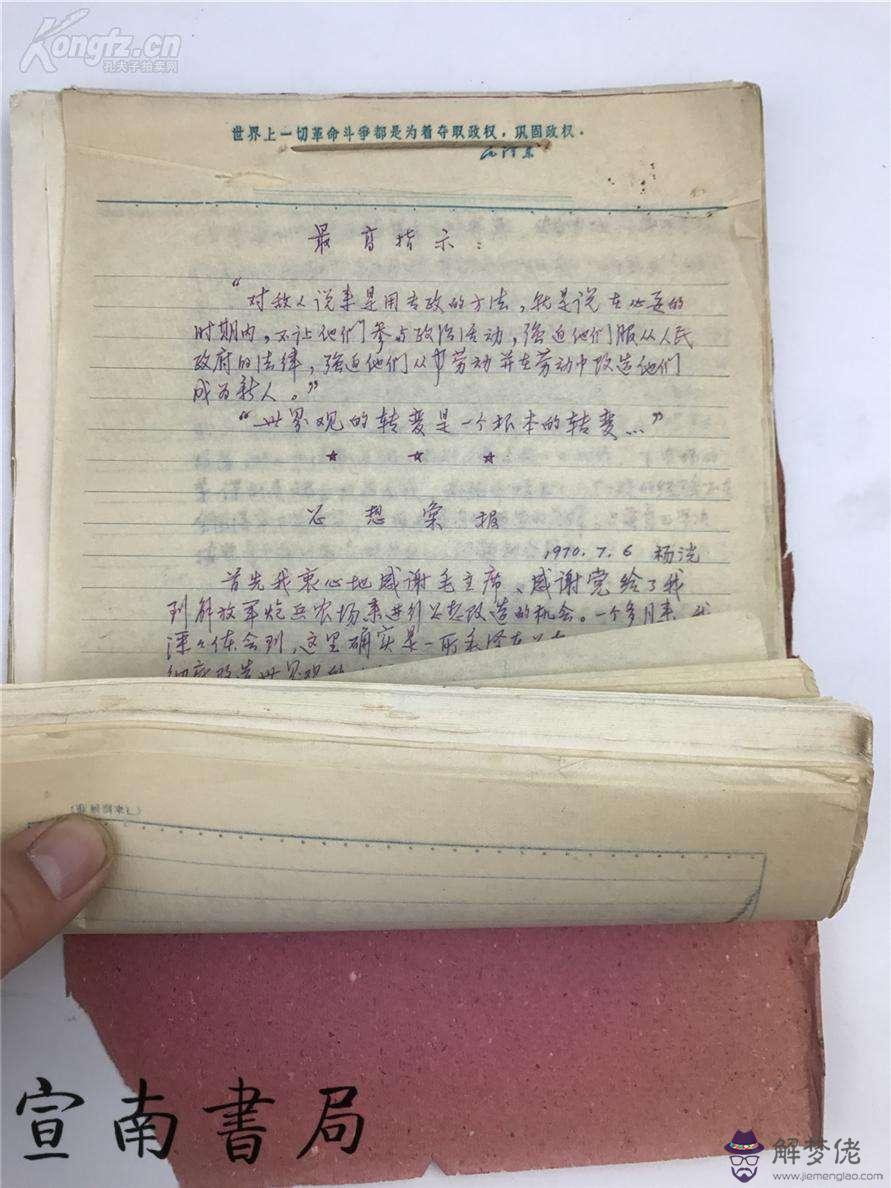 Kongfz.cn
孔夫子拍卖网
世界上一切革命斗争都是为着夺取政权，巩固政权。
毛泽东
最高指示：
“对敌人说来是用专政的方法，就是说在必要的
时期内，不让他们参与政治活动，强迫他们服从人民
政府的法律，强迫他们从事劳动并在劳动中改造他们
成为新人。”
“世界观的转变是一个根本的转变…”
思想汇报
1970.7.6 杨
首先我衷心地感谢毛主席、感谢党给了我
到解放军炮兵农场来进行思想改造的机会。一个多月来，我
深々体会到，这里确实是一所毛泽东
宣南書局
解梦佬
www.jiemenglao.com